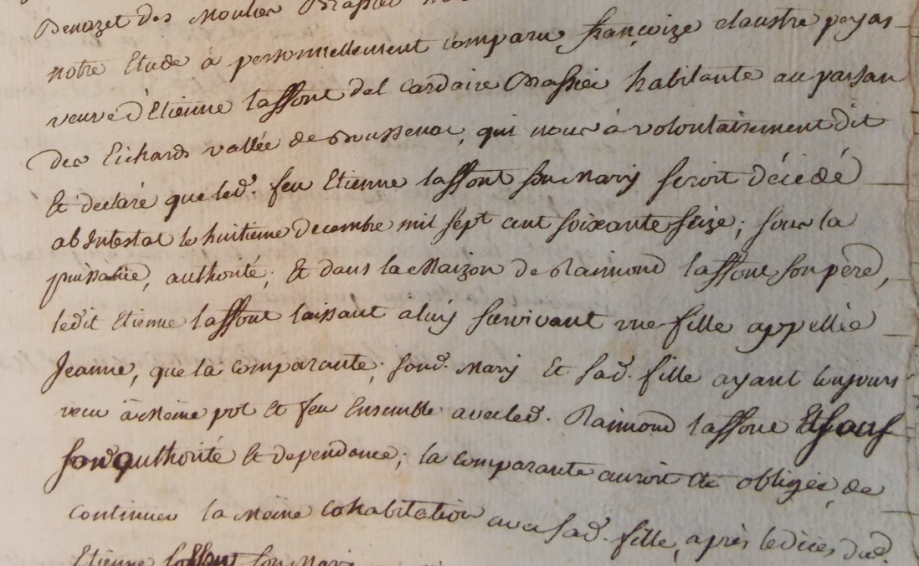 Benazet des Moulies Brassier
notre Etude à personnellement comparu françoize claustre paÿas
veuve d'Etienne laffont del cardaire Brassier habitante au parsan
des Eichards vallée de Boussenac, qui nous à volontairement dit
Et declaré que led. feu Etienne laffont son Mary seroit décédé
ab Intestat le huitieme decembre mil sept cent soixante seize; sous la
puissance, authorité, Et dans la Maizon de Raimond laffont son pere,
ledit Etienne laffont laissant a luy survivant une fille appellée
Jeanne, que la comparante, sond. Mary Et sad. fille ayant toujours
vecu à Meme pot Et feu Ensemble avec led. Raimond laffont Et sous
son authorité Et dependance; la comparante auroit été obligée de
continuer la Meme cohabitation avec sad. fille, après le déces dud.
Etienne laffont son Mary